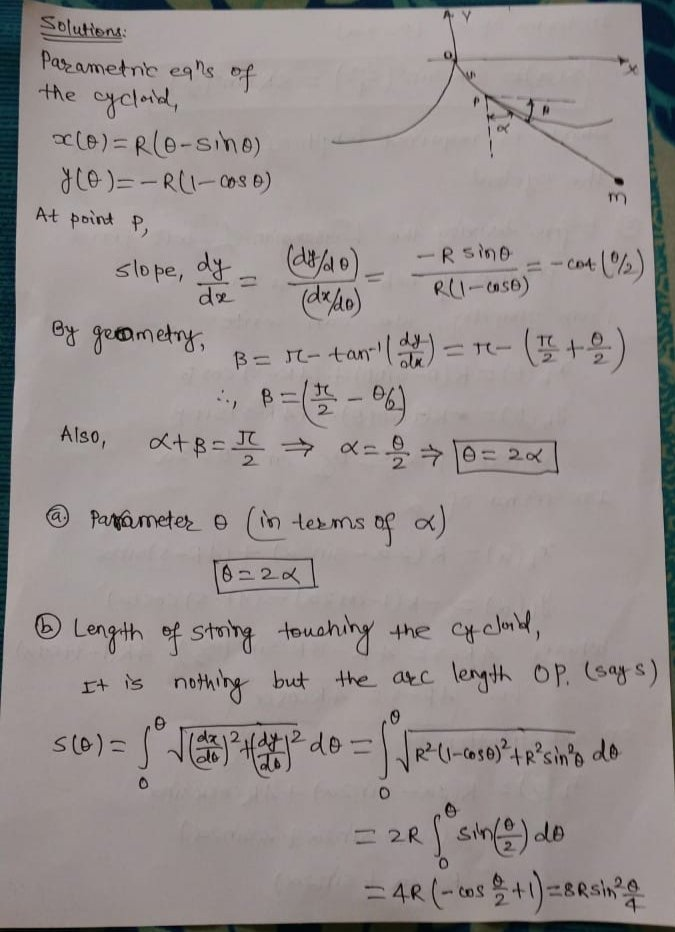 Solutions:
Parametric eqns of
the cycloid,
x(θ)=R(θ-sinθ)
y(θ)=-R(1-cosθ)
Y
O
X
S
P
β
α
m
At point P,
slope, dy/dx = (dy/dθ)/(dx/dθ) = -R sinθ/R(1-cosθ) = -cot(θ/2)
By geometry,
β = π - tan⁻¹(dy/dx) = π - (π/2 + θ/2)
∴, β = (π/2 - θ/2)
Also, α+β = π/2 ⇒ α = θ/2 ⇒ θ = 2α
(a.) Parameter θ (in terms of α)
θ = 2α
(b) Length of string touching the cycloid,
It is nothing but the arc length OP. (say s)
s(θ) = ∫₀^θ √((dx/dθ)²+(dy/dθ)²) dθ = ∫₀^θ √(R²(1-cosθ)²+R²sin²θ) dθ
= 2R ∫₀^θ sin(θ/2) dθ
= 4R(-cos θ/2 +1) = 8R sin² θ/4